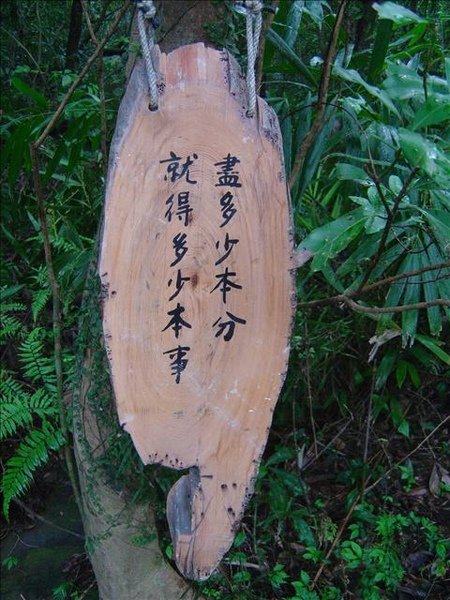 盡多少本分
就得多少本事